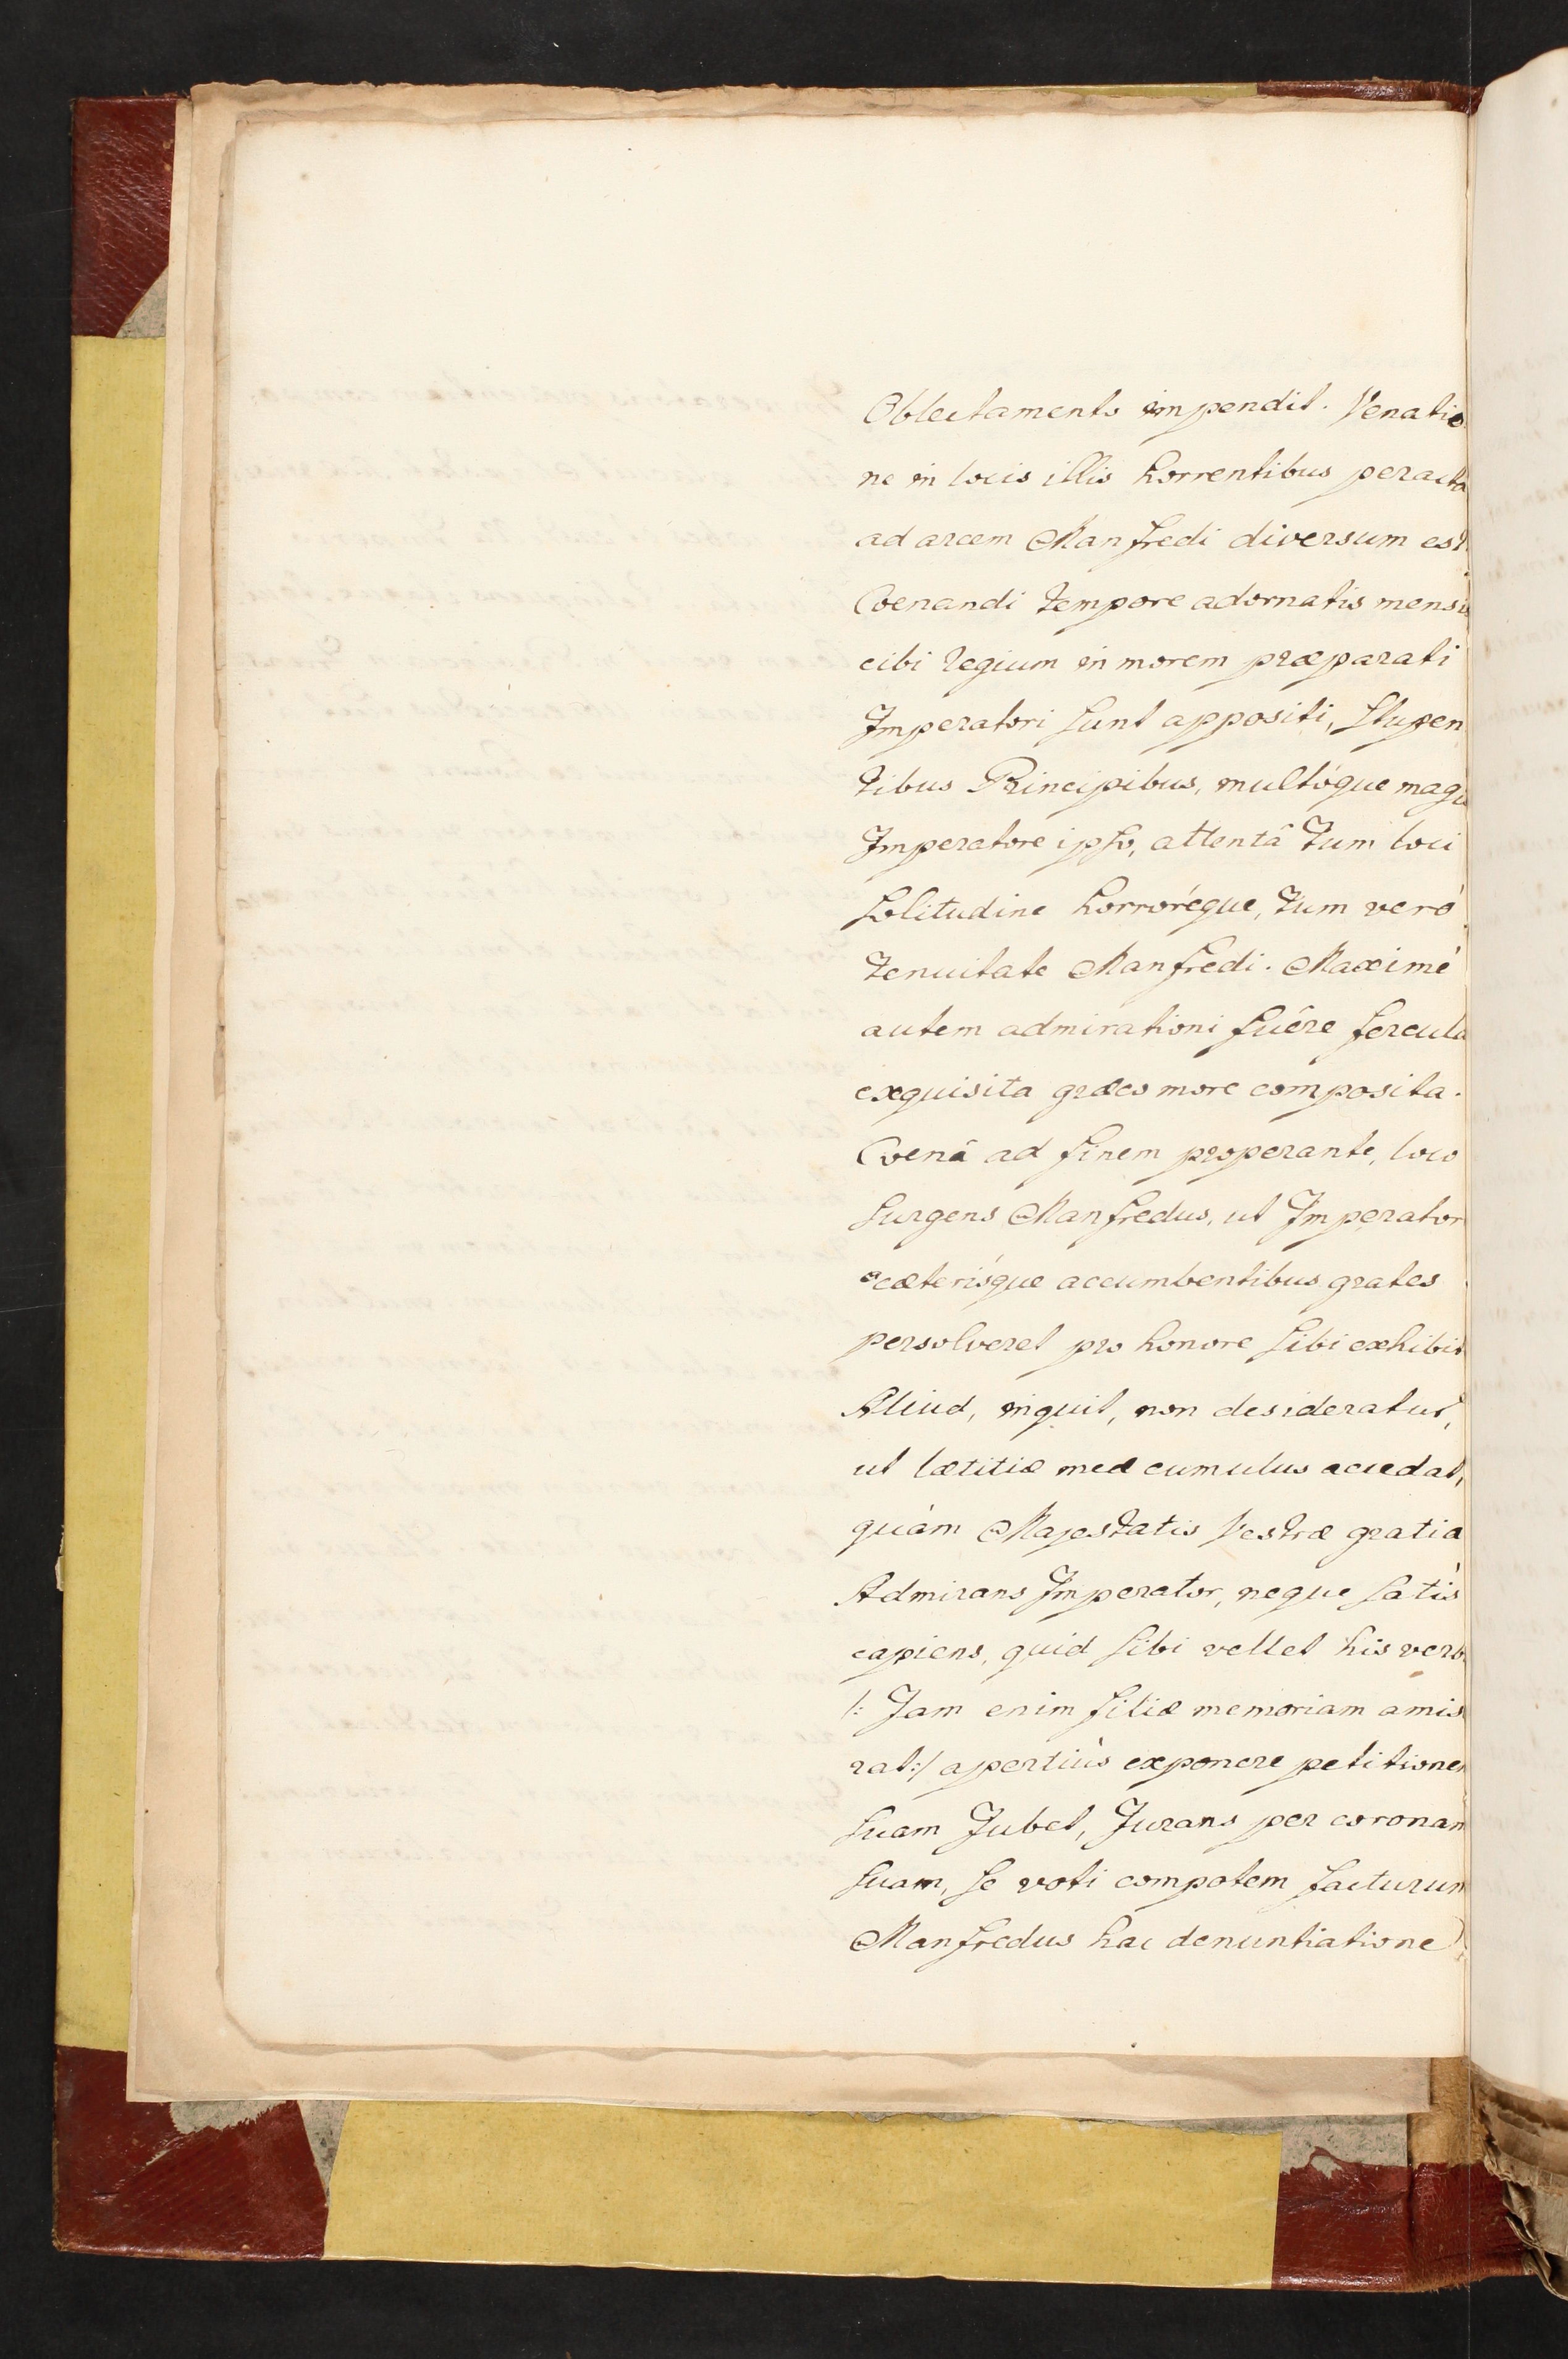 Oblectamento impendit. Venatio
ne in locis illis horrentibus peracta
ad arcem Manfredi diversum est
Coenandi tempore adornatis mensis
cibi regium in morem præparati
Imperatori sunt appositi, stupen
tibus Principibus, multóque magis
Imperatore ipso, attentâ tum loci
solitudine horroréque, tum verò
tenuitate Manfredi. Maximè
autem admirationi fuêre fercula
exquisita græco more composita.
Coenâ ad finem properante, loco
surgens Manfredus, ut Imperator
cæterisque accumbentibus grates
persolveret pro honore sibi exhibit
Aliud, inquit, non desideratur,
ut lætitiæ meæ cumulus accedat,
quàm Majestatis Vestræ gratia
Admirans Imperator, neque satìs
capiens, quid sibi vellet his verb
/: Jam enim filiæ memoriam amis
rat:/ apertiùs exponere petitionem
suam Jubet, Jurans per coronam
suam, se voti compotem facturum
Manfredus hac denuntiatione